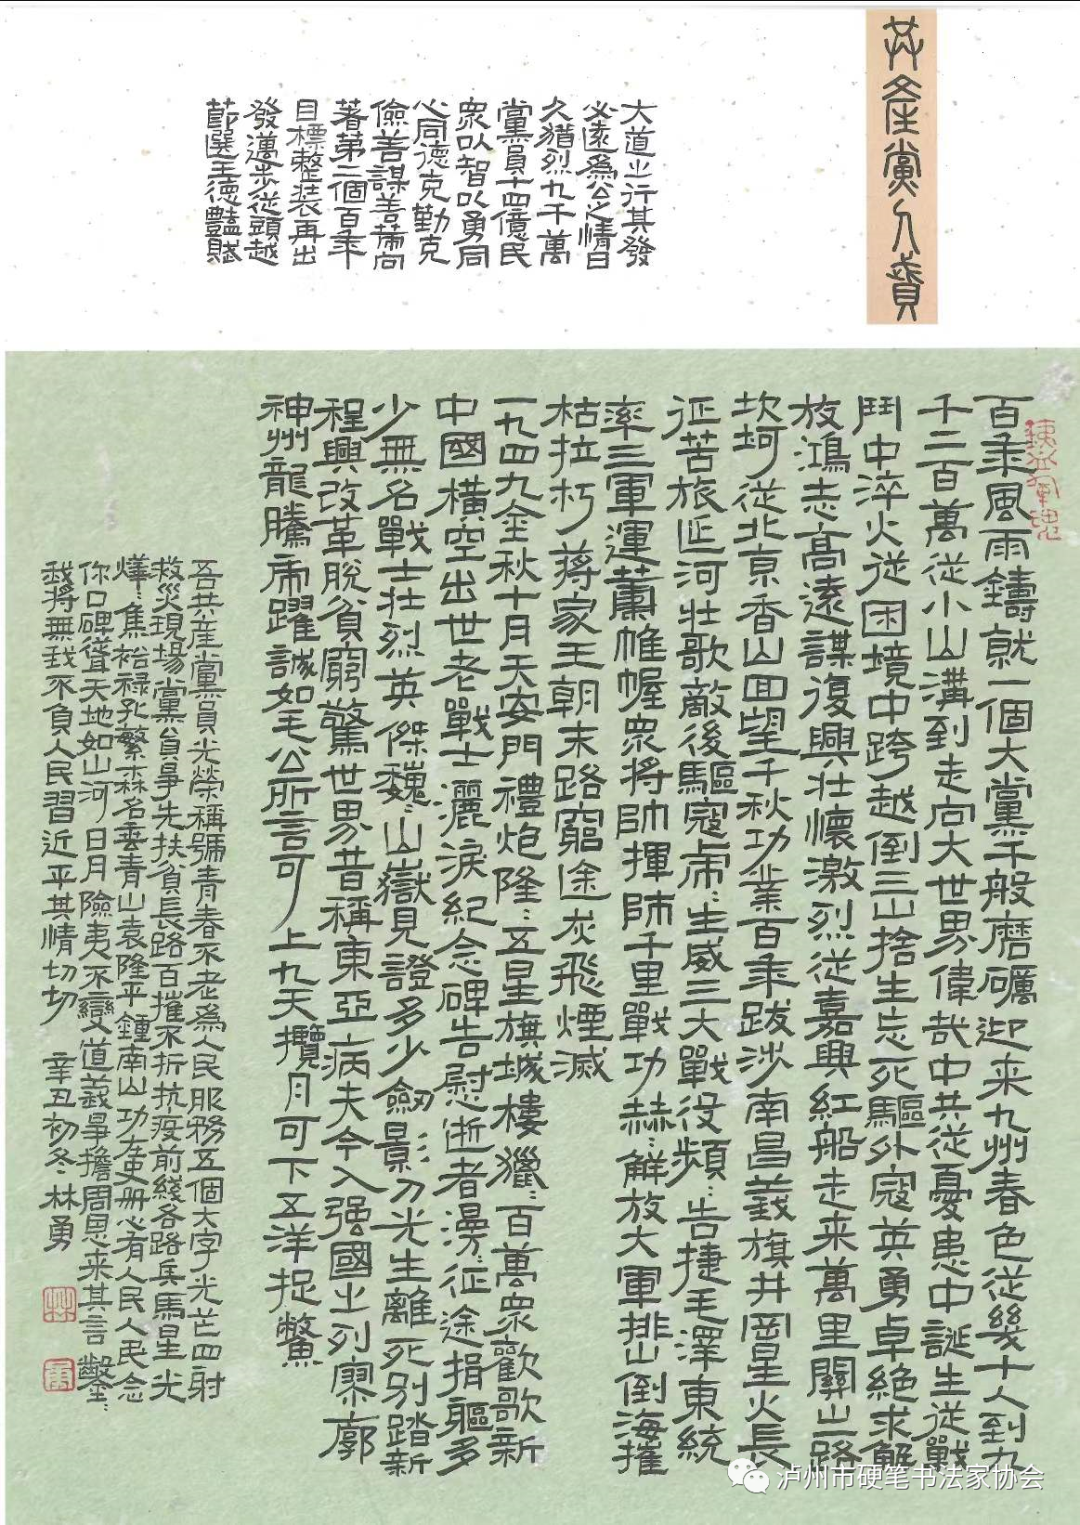 共產黨人賛
大道之行其發
必遠為公之情日
久猶烈九千萬
黨員十四億民
眾以智以勇同
心同德克勤克
儉善謀善蒂向
著第二個百年
目標整裝再出
發邁步從頭越
節選王德豔賦
百年風雨鑄就一個大黨千般磨礪迎来九州春色從幾十人到九
千二百萬從小山溝到走向大世界偉哉中共從憂患中誕生從戰
鬥中淬火從困境中跨越倒三山捨生忘死驅外寇英勇卓絶求解
放鴻志高遠謀復興壯懷激烈從嘉興紅船走来萬里關山路
坎坷從北京香山回望千秋功業百年跋涉南昌義旗井岡星火長
征苦旅延河壯歌敵後驅寇虎:生威三大戰役頻:告捷毛澤東統
率三軍運薫帷幄眾將帥揮師千里戰功赫:解放大軍排山倒海摧
枯拉朽蔣家王朝末路窮途灰飛煙滅
一九四九金秋十月天安門禮炮隆:五星旗城樓獵:百萬眾歡歌新
中國橫空出世老戰士灑淚紀念碑告慰逝者漫:征途捐軀多
少無名戰士壯烈英傑巍:山嶽見證多少劍影刀光生離死別踏新
程興改革脫貧窮驚世界昔稱東亞病夫今入强國之列寥廓
神州龍騰虎躍誠如毛公所言可上九天攬月可下五洋捉鱉
吾共產黨員光榮稱號青春不老為人民服務五個大字光芒四射
救災現場黨員爭先扶貧長路百摧不折抗疫前綫各路兵馬星光
燁:焦裕禄孔繁森名垂青山袁隆平鍾南山功在史册心有人民人民念
你口碑聳天地如山河日月險夷不變道義爭擔周恩来其言鑿:
我將無我不負人民習近平其情切切 辛丑初冬林勇
泸州市硬笔书法家协会